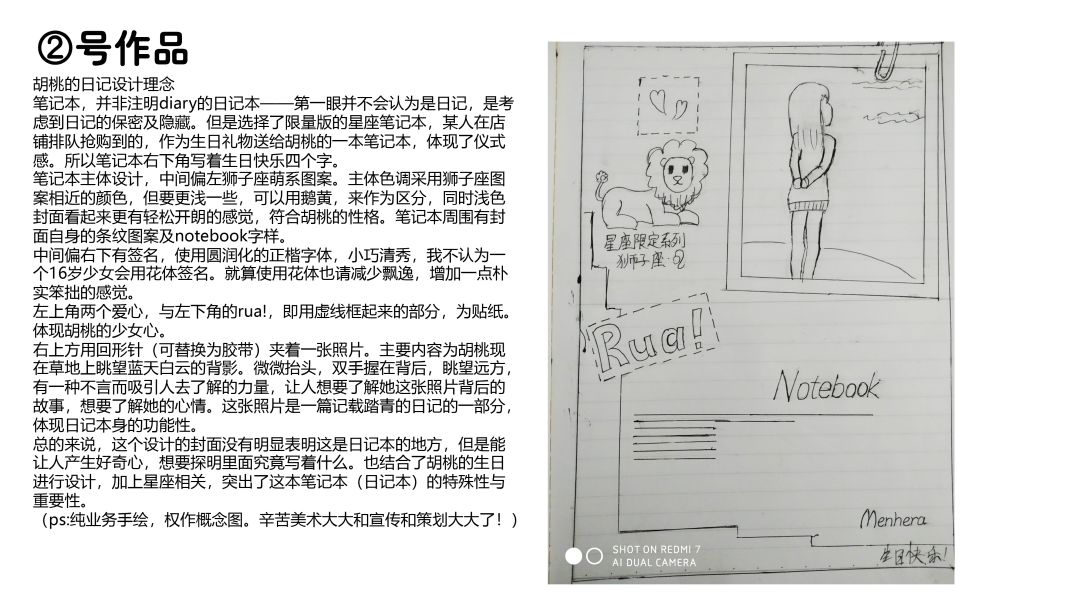 ②号作品
胡桃的日记设计理念
笔记本，并非注明diary的日记本——第一眼并不会认为是日记，是考
虑到日记的保密及隐藏。但是选择了限量版的星座笔记本，某人在店
铺排队抢购到的，作为生日礼物送给胡桃的一本笔记本，体现了仪式
感。所以笔记本右下角写着生日快乐四个字。
笔记本主体设计，中间偏左狮子座萌系图案。主体色调采用狮子座图
案相近的颜色，但要更浅一些，可以用鹅黄，来作为区分，同时浅色
封面看起来更有轻松开朗的感觉，符合胡桃的性格。笔记本周围有封
面自身的条纹图案及notebook字样。
中间偏右下有签名，使用圆润化的正楷字体，小巧清秀，我不认为一
个16岁少女会用花体签名。就算使用花体也请减少飘逸，增加一点朴
实笨拙的感觉。
左上角两个爱心，与左下角的rua!，即用虚线框起来的部分，为贴纸。
体现胡桃的少女心。
右上方用回形针（可替换为胶带）夹着一张照片。主要内容为胡桃现
在草地上眺望蓝天白云的背影。微微抬头，双手握在背后，眺望远方，
有一种不言而吸引人去了解的力量，让人想要了解她这张照片背后的
故事，想要了解她的心情。这张照片是一篇记载踏青的日记的一部分，
体现日记本身的功能性。
总的来说，这个设计的封面没有明显表明这是日记本的地方，但是能
让人产生好奇心，想要探明里面究竟写着什么。也结合了胡桃的生日
进行设计，加上星座相关，突出了这本笔记本（日记本）的特殊性与
重要性。
（ps:纯业务手绘，权作概念图。辛苦美术大大和宣传和策划大大了！）
星座限定系列
狮子座·♌
Rua!
Notebook
Menhera
生日快乐!
SHOT ON REDMI 7
AI DUAL CAMERA